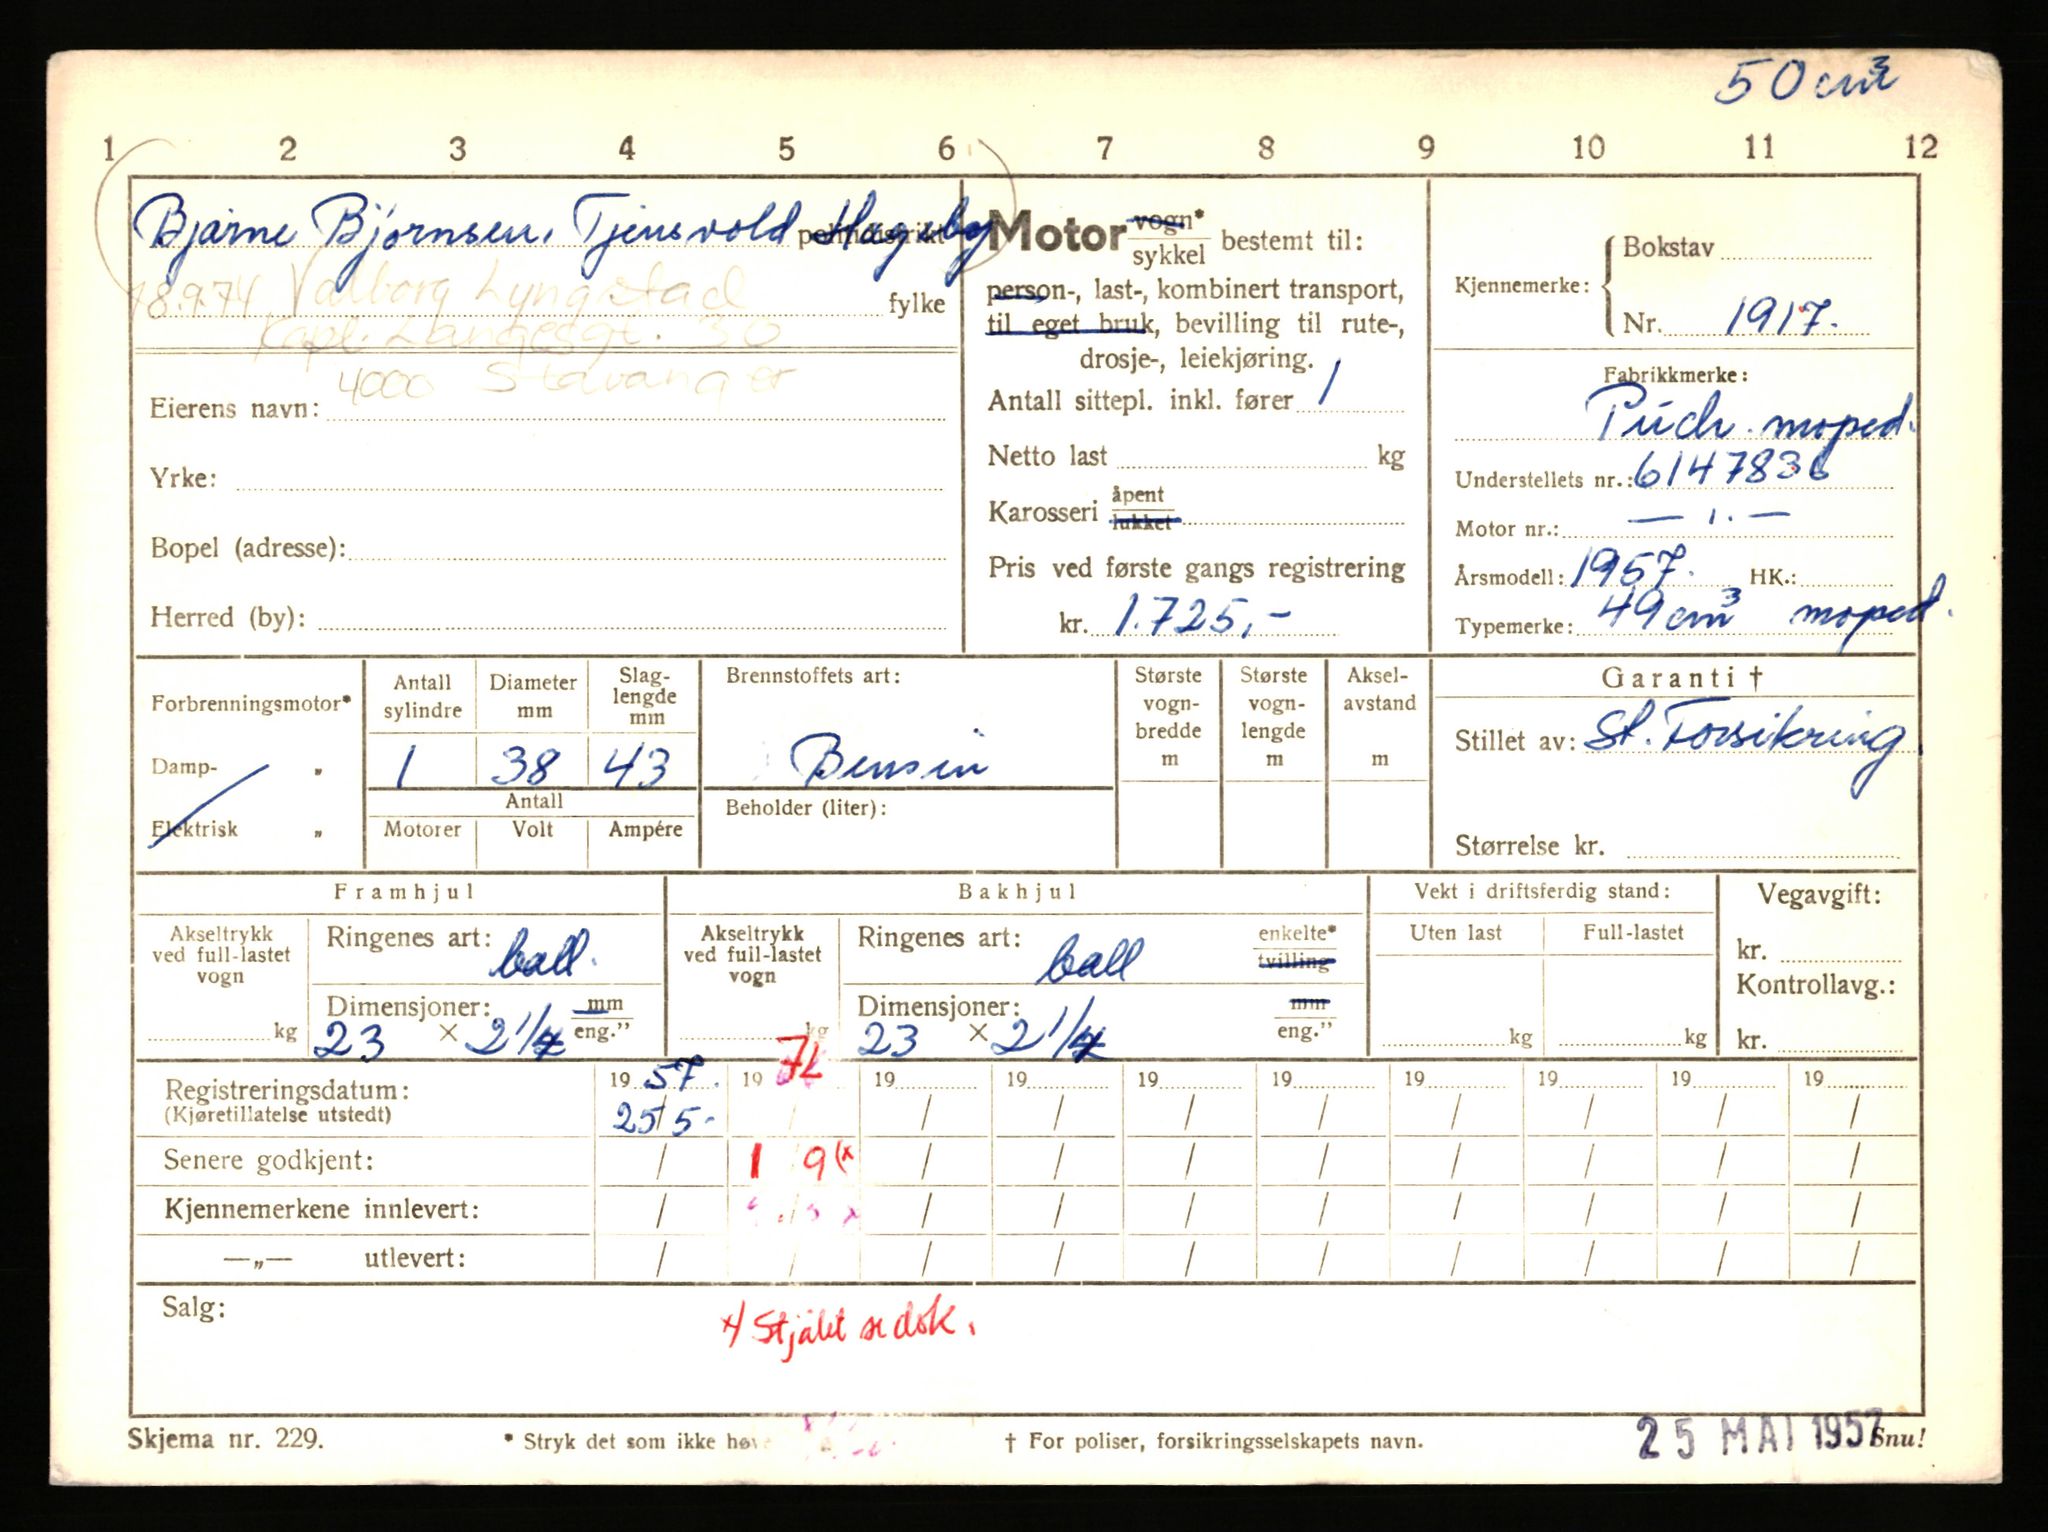 50 cm³
1 2 3 4 5 6 7 8 9 10 11 12
Bjarne Bjørnsen, Tjensvold Hageby politidistrikt
18.9.74 Valborg Lyngstad fylke
Kapl. Langesgt. 30
4000 Stavanger
Eierens navn:
Yrke:
Bopel (adresse):
Herred (by):
Motor vogn*
sykkel bestemt til:
person-, last-, kombinert transport,
til eget bruk, bevilling til rute-,
drosje-, leiekjøring.
Antall sittepl. inkl. fører 1
Netto last kg
Karosseri åpent
lukket
Pris ved første gangs registrering
kr. 1.725,-
Kjennemerke: Bokstav
Nr. 1917.
Fabrikkmerke:
Puch moped.
Understellets nr.: 6147836
Motor nr.: — ı. —
Årsmodell: 1957. HK.:
Typemerke: 49 cm³ moped.
Forbrenningsmotor*
Damp- „
Elektrisk „
Antall sylindre
Diameter mm
Slag-lengde mm
1 38 43
Antall
Motorer Volt Ampére
Brennstoffets art:
Bensin
Beholder (liter):
Største vogn-bredde m
Største vogn-lengde m
Aksel-avstand m
Garanti †
Stillet av: St. Forsikring
Størrelse kr.
Framhjul
Akseltrykk ved full-lastet vogn
kg
Ringenes art: ball.
Dimensjoner: mm
23 × 2 1/4 eng."
Bakhjul
Akseltrykk ved full-lastet vogn
kg
Ringenes art: ball enkelte*
tvilling
Dimensjoner: mm
23 × 2 1/4 eng."
Vekt i driftsferdig stand:
Uten last Full-lastet
kg kg
Vegavgift:
kr.
Kontrollavg.:
kr.
Registreringsdatum: 19 57. 19 72 19 19 19 19 19 19 19 19
(Kjøretillatelse utstedt) 25/5- / / / / / / / / /
Senere godkjent: / 1/9 (x / / / / / / / /
Kjennemerkene innlevert: / / / / / / / / / /
—„— utlevert: / / / / / / / / / /
Salg:
x) Stjålet se dok.
Skjema nr. 229.
* Stryk det som ikke høve
† For poliser, forsikringsselskapets navn.
25 MAI 1957
Snu!